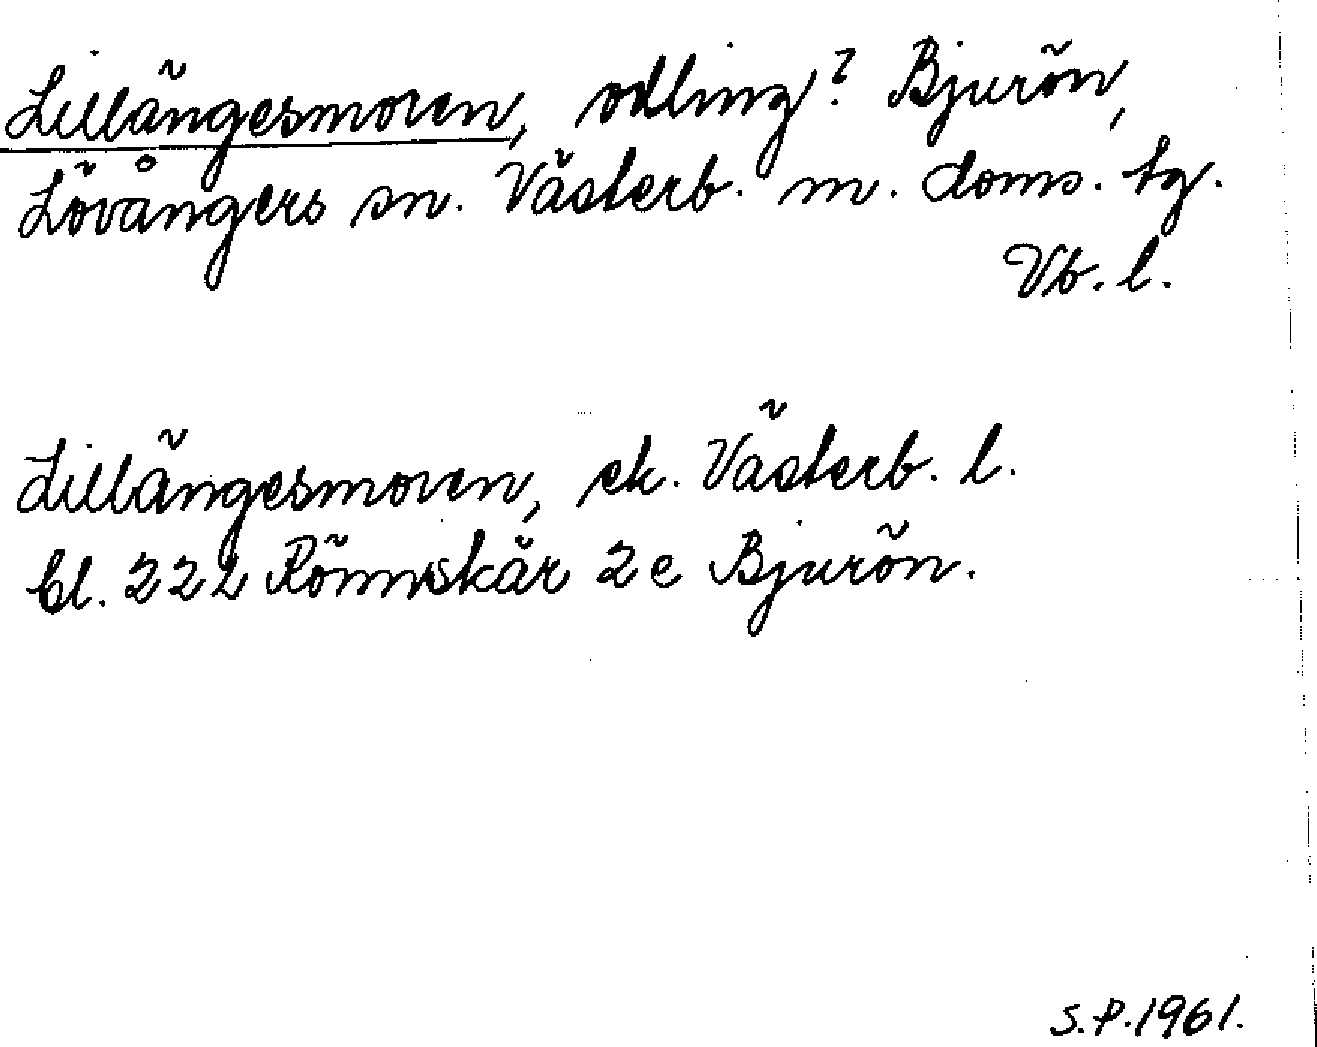 Lillängesmoren, odling? Bjurön,
Lövångers sn. Västerb. m. doms. tg.
Vb. l.
Lillängesmoren, ek. Västerb. l.
bl. 222 Rönnskär 2 e Bjurön.
S.P. 1961.